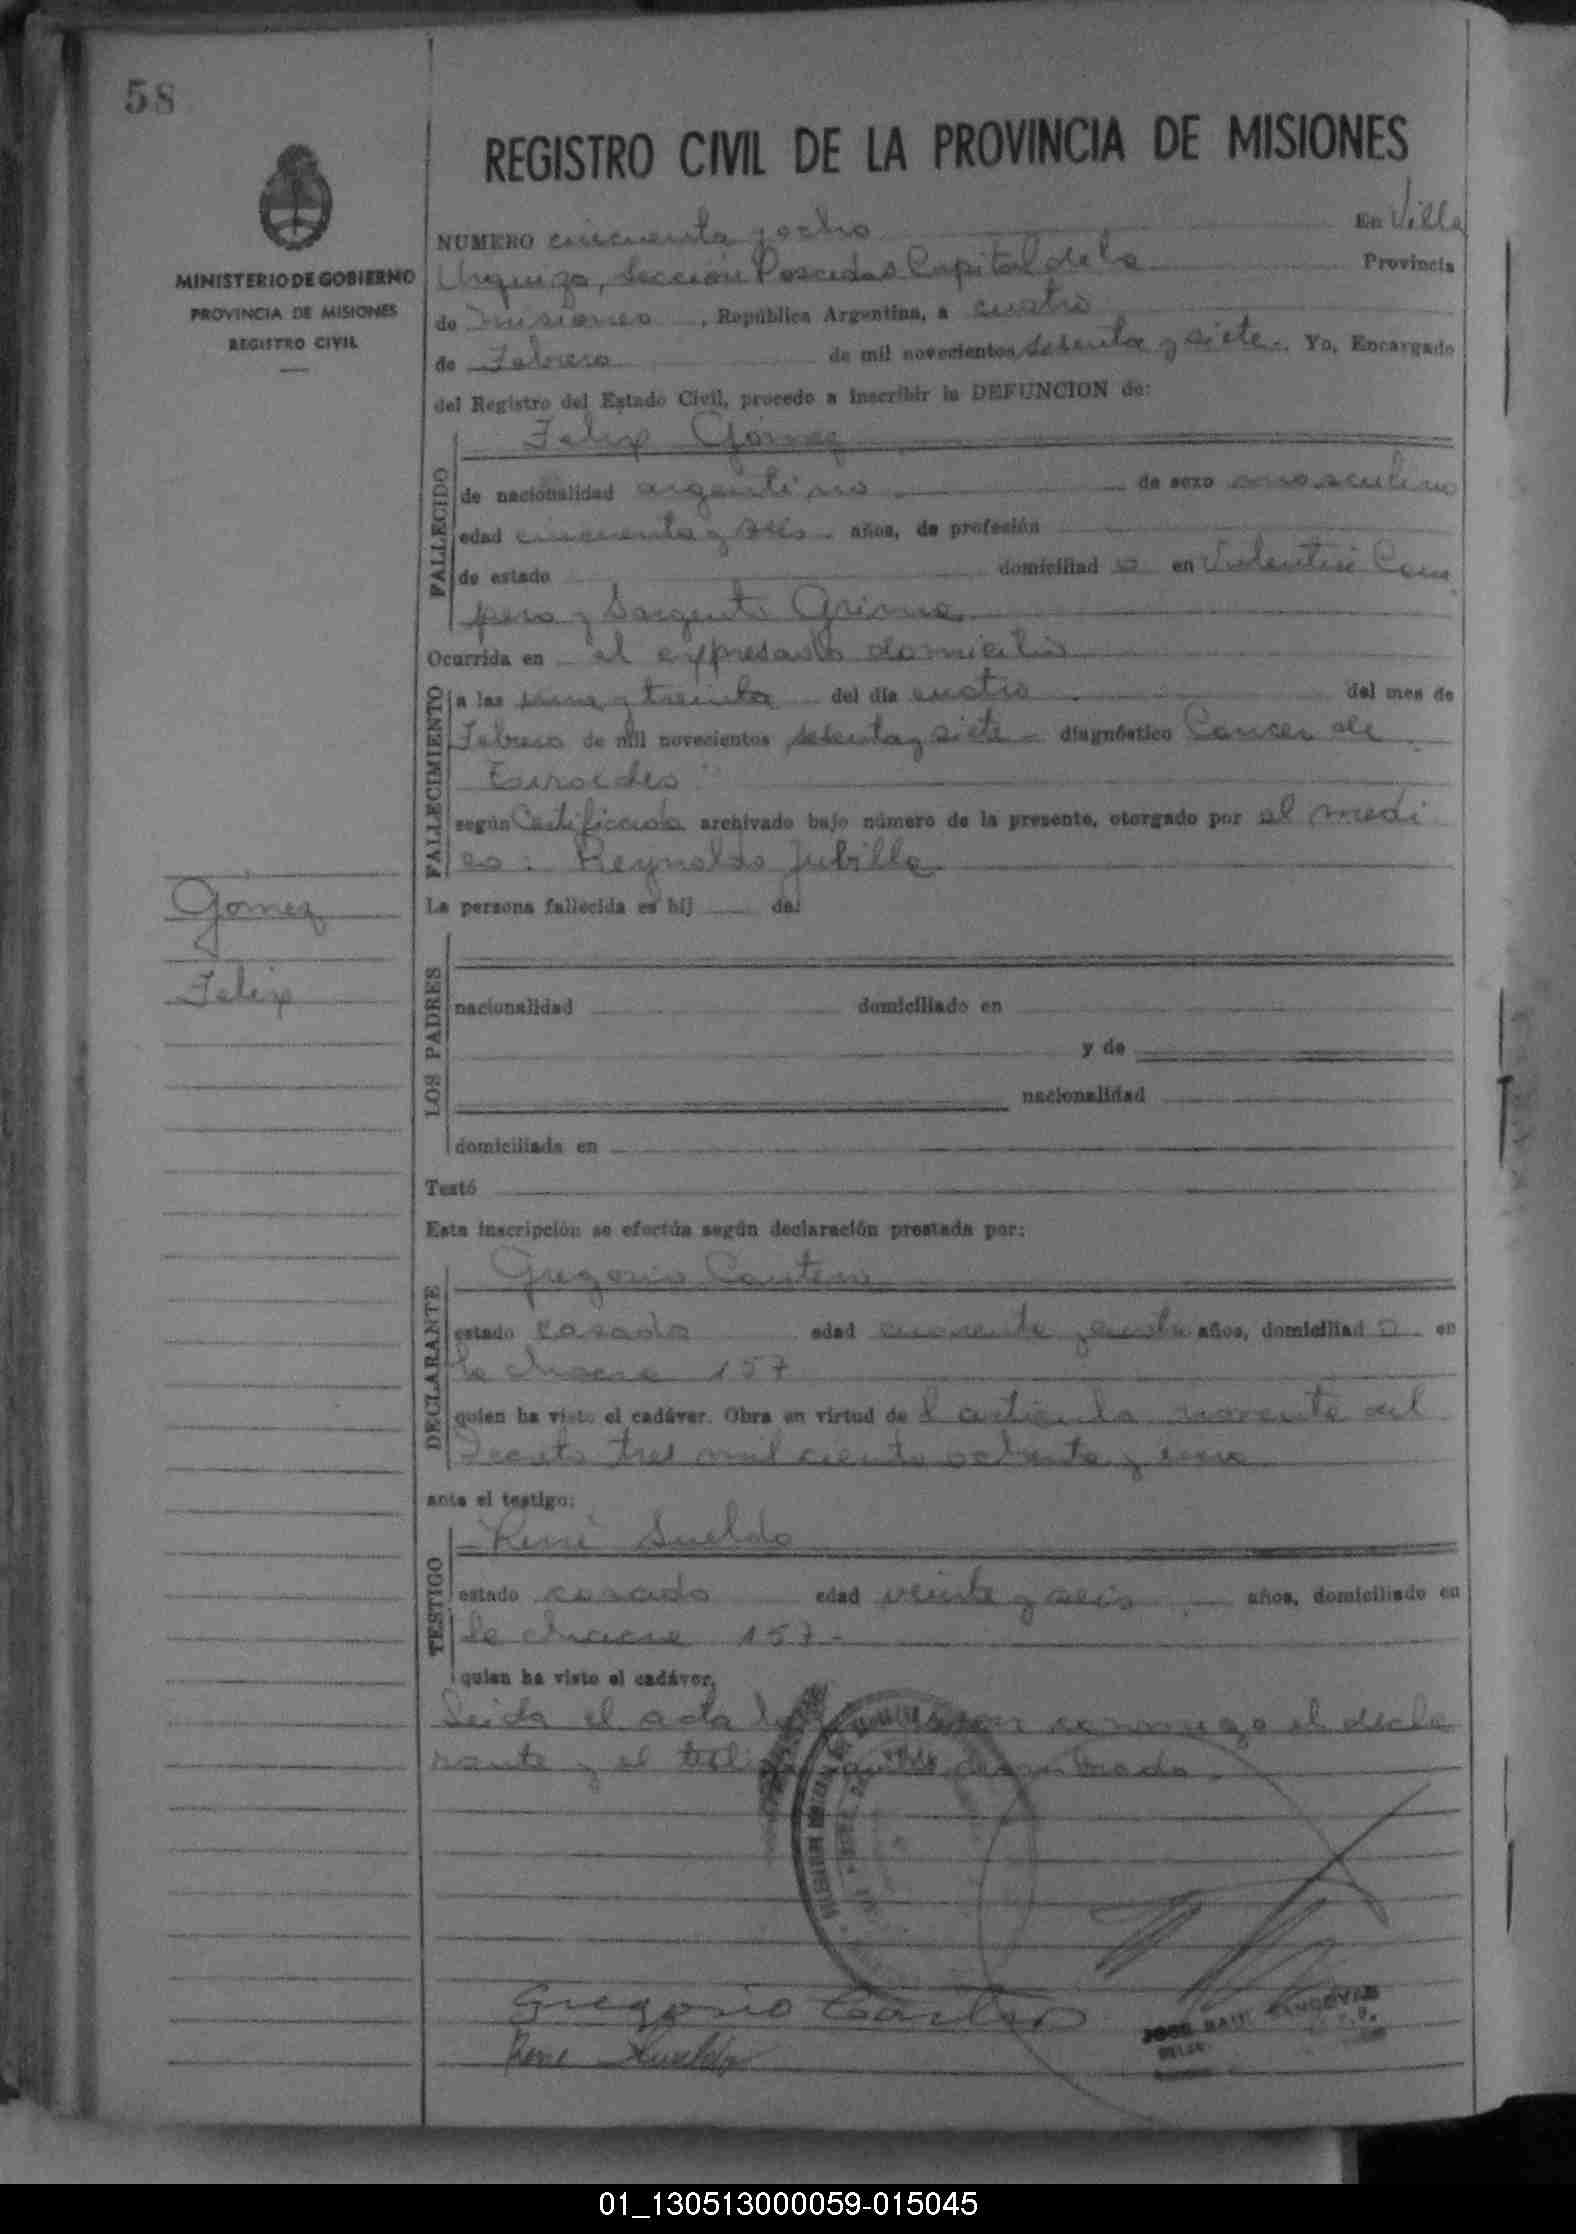 58
REGISTRO CIVIL DE LA PROVINCIA DE MISIONES
MINISTERIO DE GOBIERNO
PROVINCIA DE MISIONES
REGISTRO CIVIL
NUMERO cincuenta y ocho En Villa
Urquiza, Sección Posadas Capital de la Provincia
de Misiones, República Argentina, a cuatro
de Febrero de mil novecientos setenta y siete. Yo, Encargado
del Registro del Estado Civil, procedo a inscribir la DEFUNCION de:
FALLECIDO
Felix Gómez
de nacionalidad argentino de sexo masculino
edad cincuenta y tres años, de profesión
de estado domiciliad o en Valentin Cam
pero y Sargento
Ocurrida en el expresado domicilio
FALLECIMIENTO
a las una y treinta del día cuatro del mes de
Febrero de mil novecientos setenta y siete diagnóstico Cancer de
Tiroides
según Certificado archivado bajo número de la presente, otorgado por el medi
co: Reynaldo Jubilla
La persona fallecida es hij de:
Gómez
Felix
LOS PADRES
nacionalidad domiciliado en
y de
nacionalidad
domiciliada en
Testó
Esta inscripción se efectúa según declaración prestada por:
DECLARANTE
Gregorio
estado casado edad cuarenta y años, domiciliad o en
la chacra 157
quien ha visto el cadáver. Obra en virtud de l articulo noventa del
Decreto tres mil ciento ochenta y
ante el testigo:
TESTIGO
René Sueldo
estado casado edad veinte y seis años, domiciliado en
la chacra 157-
quien ha visto el cadáver,
Leida el acta la conmigo el decla
rante y el testigo
Gregorio
Rene Sueldo
JOSE RAUL SANDOVAL
01_130513000059-015045